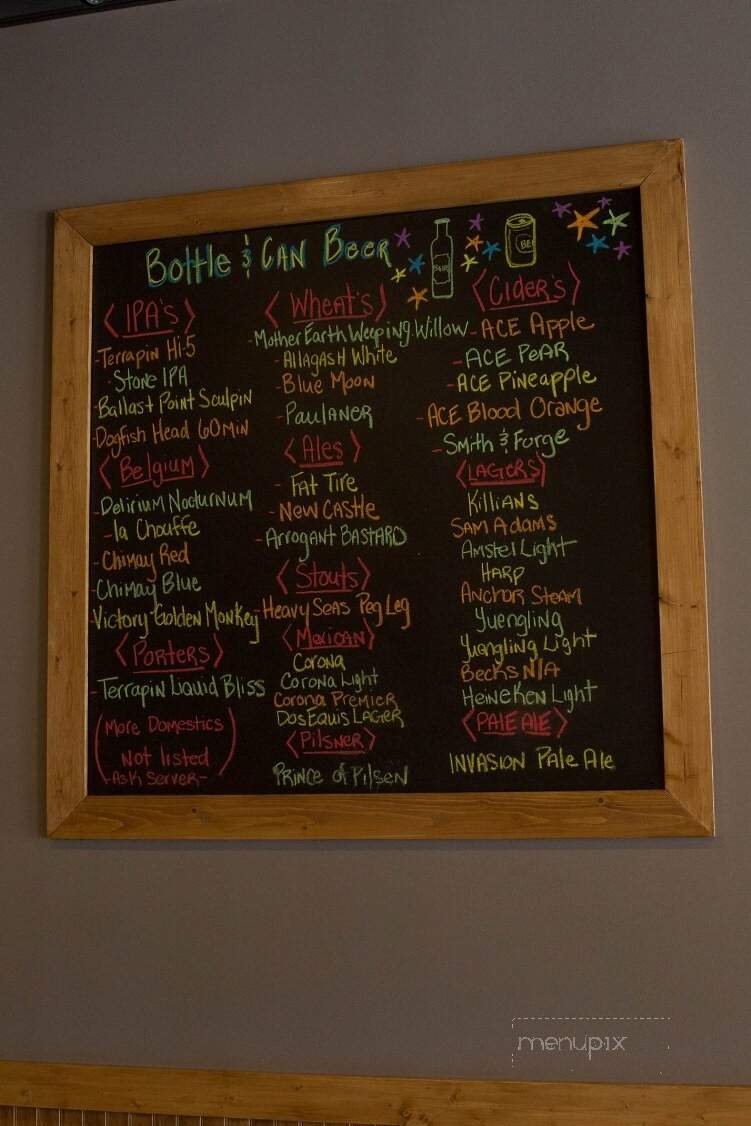 Bottle & CAN Beer
BEER
BEE
<IPA's>
-Terrapin Hi·5
·Stone IPA
-Ballast Point Sculpin
-Dogfish Head 60 Min
<Belgium>
-Delirium Nocturnum
-la Chouffe
-Chimay Red
-Chimay Blue
Victory Golden Monkey
<Porters>
-Terrapin Liquid Bliss
(More Domestics
Not listed
-Ask Server-)
<Wheat's>
-Mother Earth Weeping Willow
-Allagash White
-Blue Moon
-Paulaner
<Ales>
-Fat Tire
-New Castle
-Arrogant BASTARD
<Stouts>
-Heavy Seas Peg Leg
<Mexican>
Corona
Corona Light
Corona Premier
Dos Equis Lager
<Pilsner>
Prince of Pilsen
<Cider's>
-ACE Apple
-ACE Pear
-ACE Pineapple
-ACE Blood Orange
-Smith & Forge
<LAGERS>
Killians
SAM ADAMS
Amstel Light
HARP
Anchor Steam
Yuengling
Yuengling Light
Becks N/A
Heineken Light
<PALE ALE>
INVASION Pale Ale
menupix